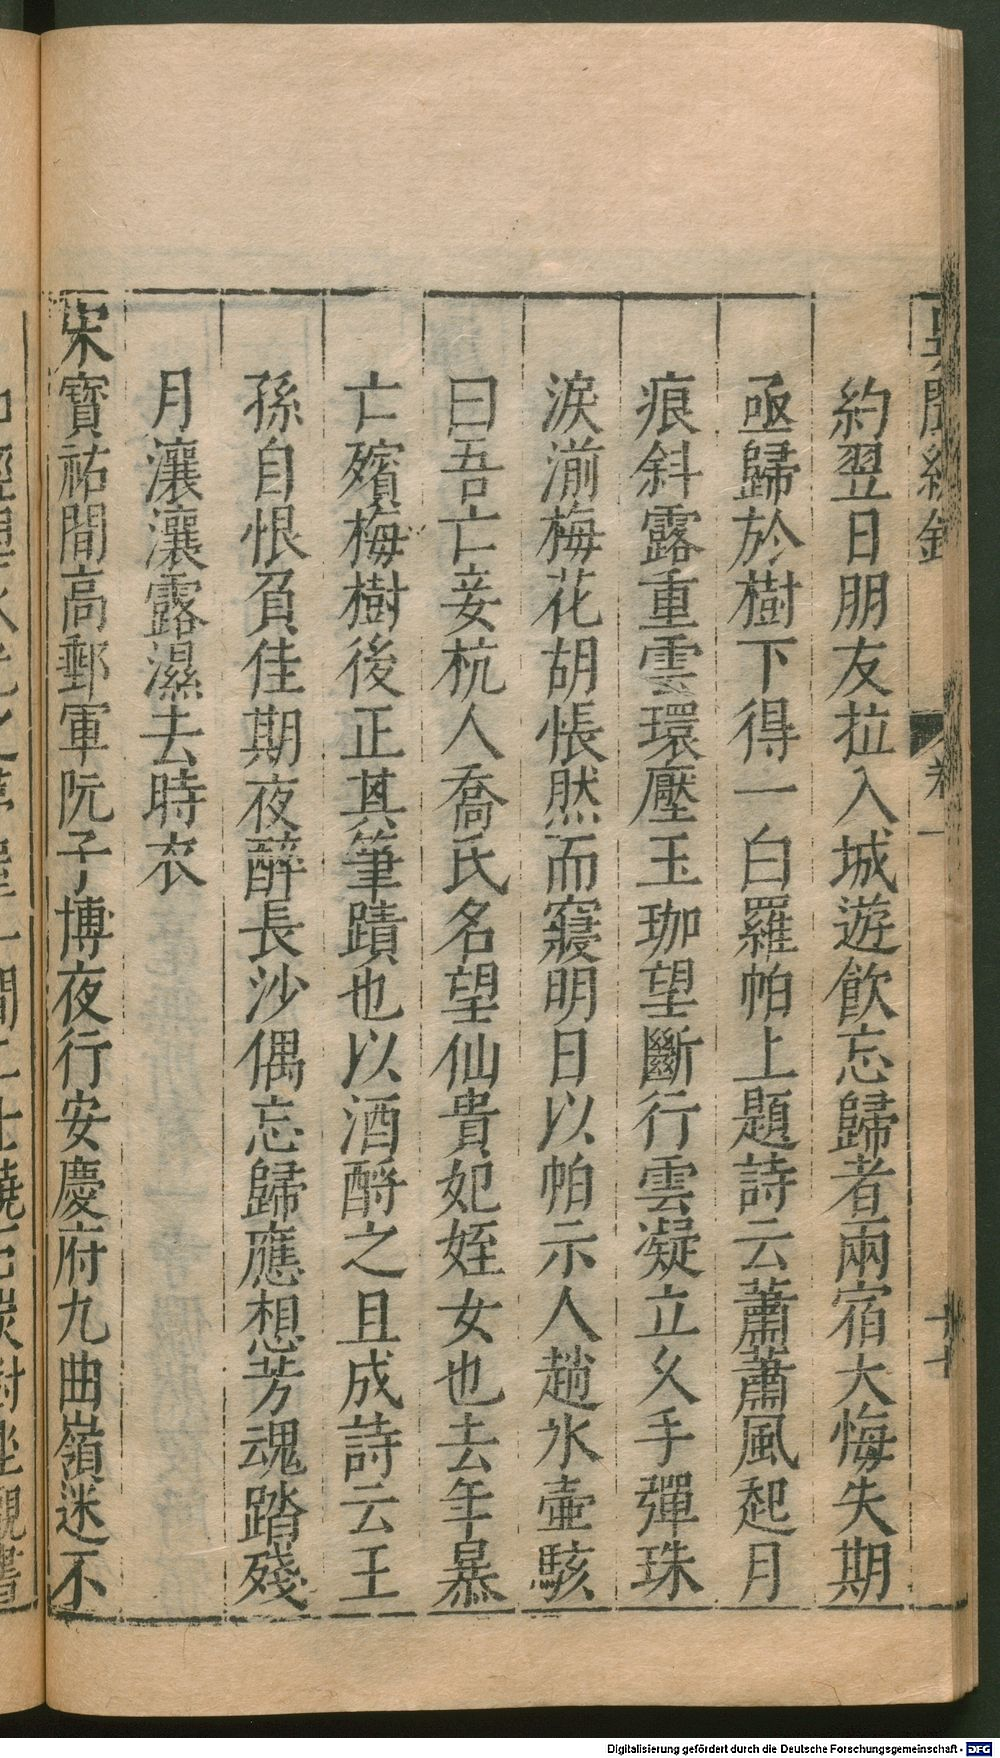 異聞總錄 卷一
約翌日朋友拉入城遊飲忘歸者兩宿大悔失期
亟歸於樹下得一白羅帕上題詩云蕭蕭風起月
痕斜露重雲環壓玉珈望斷行雲凝立久手彈珠
淚湔梅花胡悵然而寤明日以帕示人趙氷壷駭
曰吾亡妾杭人喬氏名望仙貴妃姪女也去年暴
亡殯梅樹後正其筆蹟也以酒酹之且成詩云王
孫自恨負佳期夜醉長沙偶忘歸應想芳魂踏殘
月瀼瀼露濕去時衣
宋寶祐間高郵軍阮子博夜行安慶府九曲嶺迷不
Digitalisierung gefördert durch die Deutsche Forschungsgemeinschaft - DFG